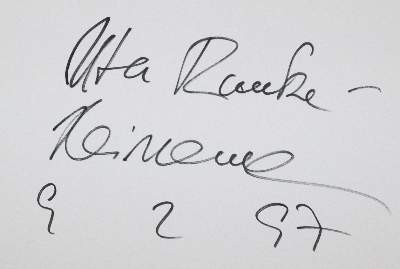 Uta Ranke-
Heinemann
9 2 97